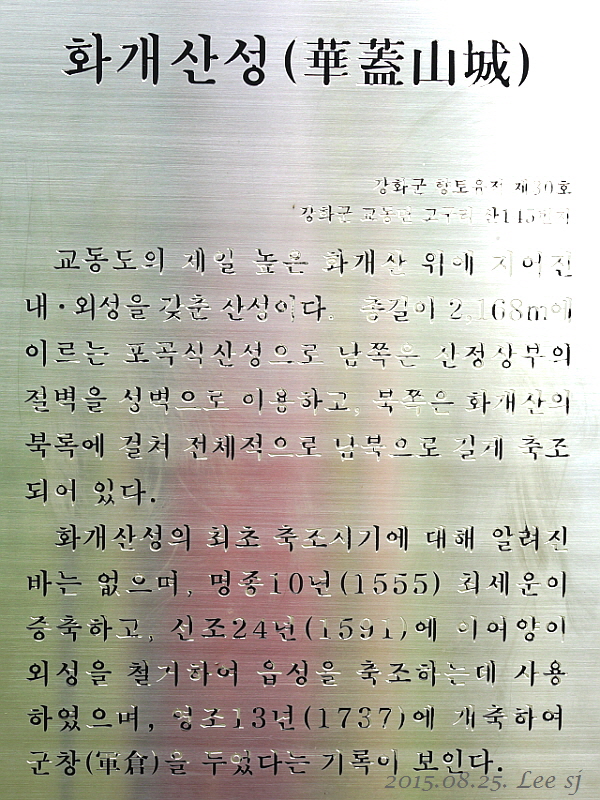 화개산성(華蓋山城)
강화군 향토유적 제30호
강화군 교동면 고구리 산145번지
교동도의 제일 높은 화개산 위에 지어진
내·외성을 갖춘 산성이다. 총길이 2,168m에
이르는 포곡식산성으로 남쪽은 산정상부의
절벽을 성벽으로 이용하고, 북쪽은 화개산의
북록에 걸쳐 전체적으로 남북으로 길게 축조
되어 있다.
화개산성의 최초 축조시기에 대해 알려진
바는 없으며, 명종10년(1555) 최세운이
증축하고, 선조24년(1591)에 이여양이
외성을 철거하여 읍성을 축조하는데 사용
하였으며, 영조13년(1737)에 개축하여
군창(軍倉)을 두었다는 기록이 보인다.
2015.08.25. Lee sj